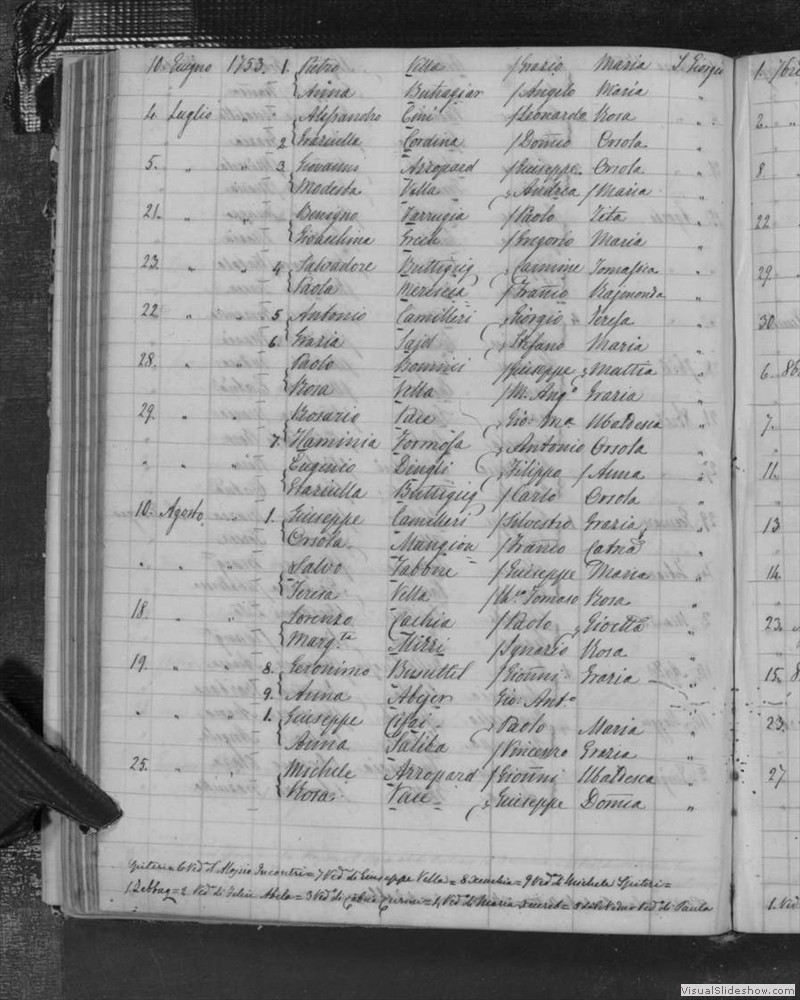 10. Giugno 1753. 1. Pietro Vella / Grazio Maria S. Giorgio 1.
Anna Buttagiar / Angelo Maria "
4. Luglio " Alessandro Cini / Leonardo Rosa " 2.
2 Graziulla Cordina / Dom̃co Orsola "
5. " " 3 Giovanni Azzopard / Giuseppe Orsola " 8.
Modesta Vella Andrea / Maria "
21. " " Benigno Farrugia / Paolo Vita " 22
Gioacchina Grech / Gregorio Maria "
23. " " 4 Salvadore Buttigieg Carmine Tomasica " 29.
Paola / Franc̃o Rajmonda "
22 " " 5 Antonio Camilleri Giorgio Teresa " 30.
6. Grazia Sajd Stefano Maria "
28. " " Paolo Bonnici / Giuseppe Mattia " 6.
Rosa Vella / M. Ang.o Grazia "
29. " " Rosario Pace Gio: Ma Ubaldesca " 7.
7. Flaminia Formosa Antonio Orsola "
" " " Eugenio Dingli Filippo / Anna " 11.
Graziulla Buttigieg / Carlo Orsola "
10. Agosto " 1. Giuseppe Camilleri / Silvestro Grazia " 13
Orsola Mangion / Franc̃o Catna "
" " " Salvo Fabbne / Giuseppe Maria " 14.
Teresa Vella Tomaso Rosa "
18. " " Lorenzo Cachia / Paolo Gioetta " 23.
Marg.ta Mizzi / Ignazio Rosa "
19. " " 8. Geronimo Busuttil / Gioñni Grazia " 15.
9. Anna Abejer Gio: Ant.o
" " " 1. Giuseppe Paolo Maria " 23.
Anna Saliba / Vincenzo Grazia "
25. " " Michele Azzopard / Gioñni Ubaldesca " 27
Rosa Pace Giuseppe Dom̃ca "
Spiteri = 6 Ved. d'Aloysio Incontri = 7 Ved. di Giuseppe Vella = 8 Xeuchia = 9 Ved. di Michele Spiteri =
1. Debbag = 2. Ved. di Felice Abela = 3 Ved. di = 4 Ved. di Maria = 5 Ved. di Paula 1. Ved
VisualSlideshow.com